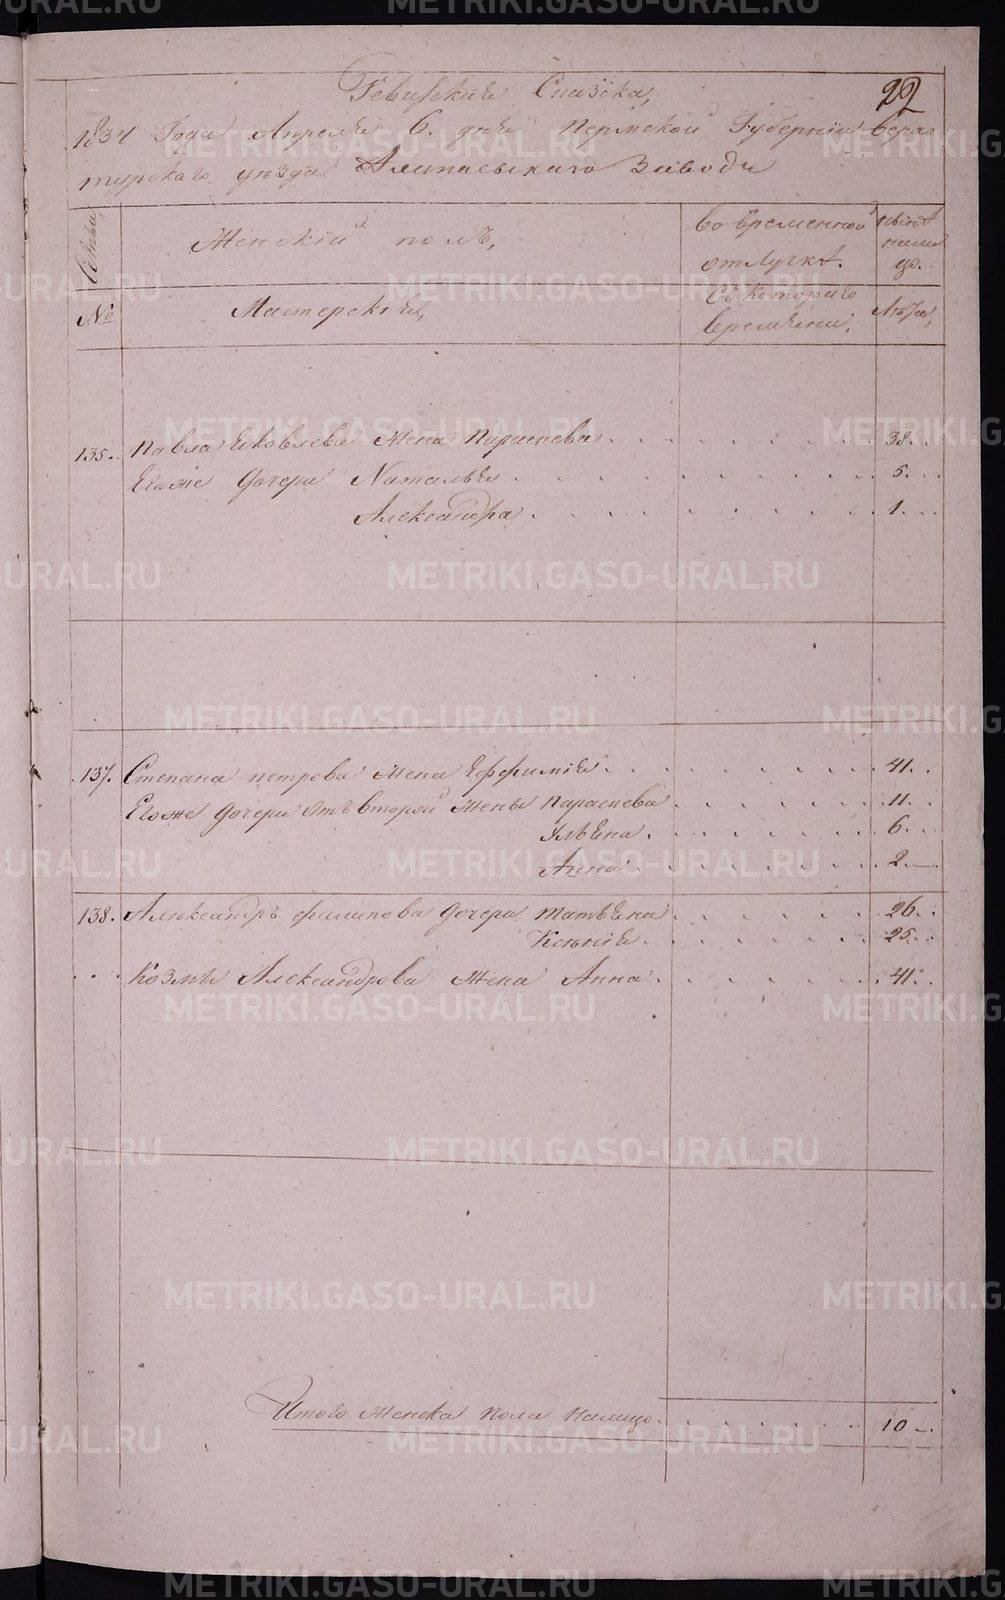 Ревизская Сказка,
22
1834 Года Апреля 6. дня Пермской Губернии верхо
турскаго уезда Алапаевскаго завода
Семьи,
Женский полъ,
во временной
отлучке.
ныне
нали
цо.
№
Мастерския,
Съ котораго
времяни,
Лета,
135. Павла Яковлева жена Парасковья 38.
Егоже дочери Наталья 5.
Александра 1.
137. Степана петрова жена Еффимия 41.
Егоже дочери отъ второй жены Парасковья 11.
Ульяна 6.
Анна 2.
138. Александръ филипова дочери татьяна 26.
Ксения 25.
Козмы Александрова жена Анна 41.
Итого женска пола налицо 10
METRIKI.GASO-URAL.RU